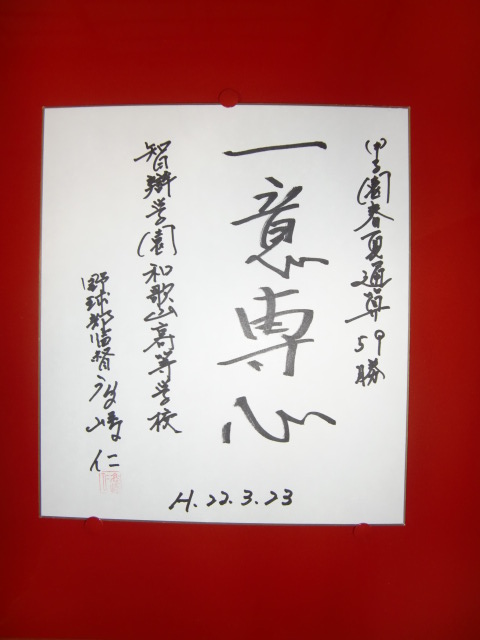 甲子園春夏通算59勝
一意専心
智辯学園和歌山高等学校
野球部監督 高嶋仁
H.22.3.23